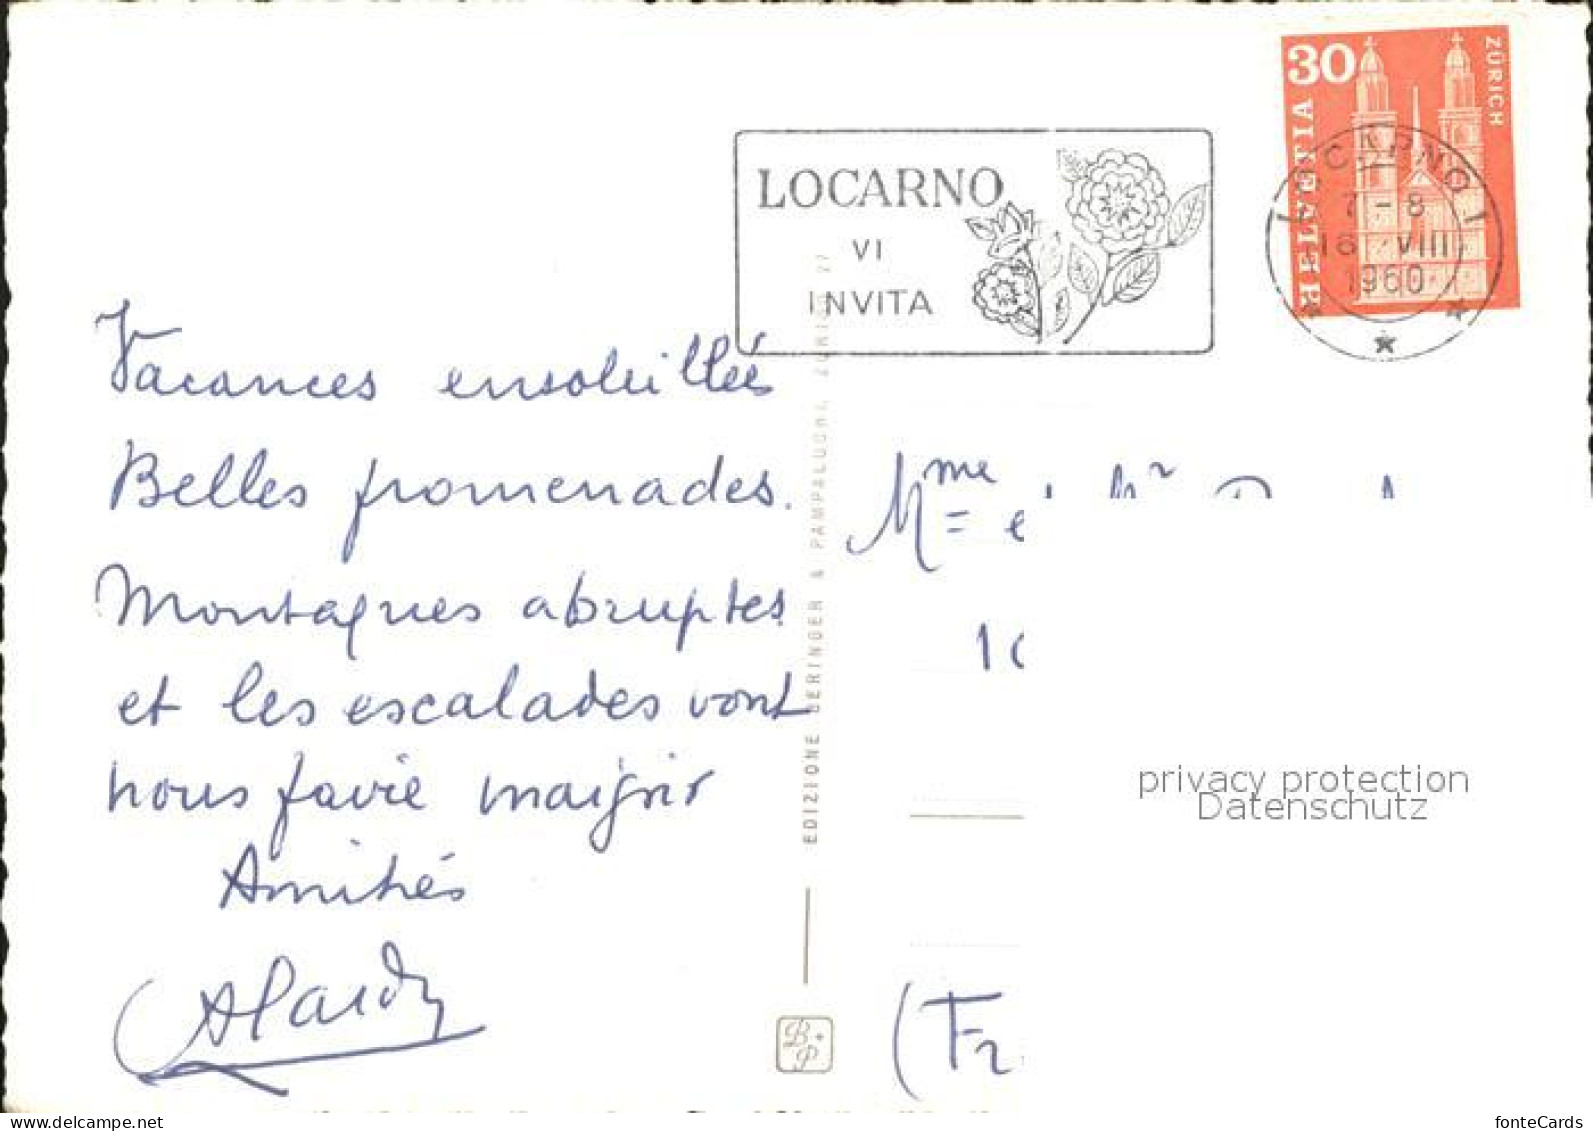 30
ZÜRICH
HELVETIA
LOCARNO 1
7 - 8
16 VIII
1960
LOCARNO
VI
INVITA
Vacances ensoleillées
Belles promenades.
Montagnes abruptes
et les escalades vont
nous faire maigrir
Amitiés
Mme et Mr
10
(Fr
EDIZIONE BERINGER & PAMPALUCHI, ZÜRIGO 27
B+P
privacy protection
Datenschutz
fonteCards